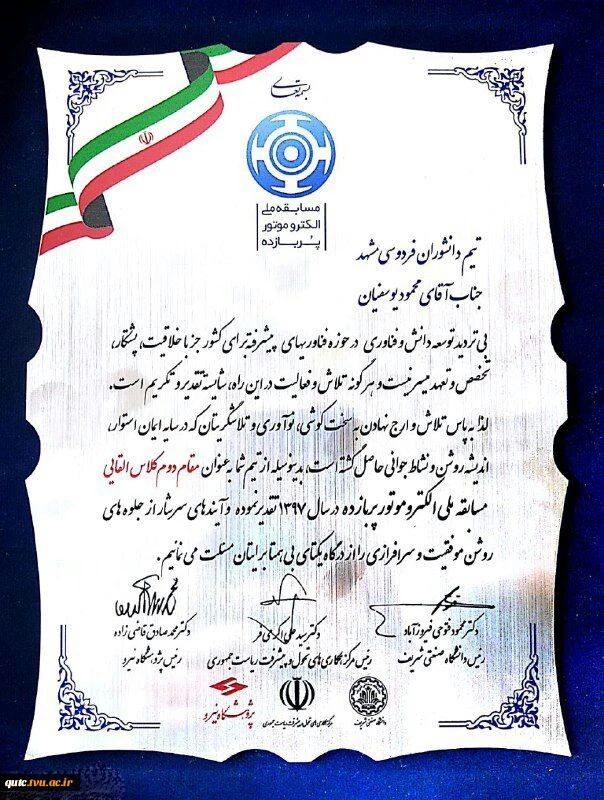 بسمه تعالی
مسابقه ملی
الکتروموتور
پُربازده
تیم دانشوران فردوسی مشهد
جناب آقای محمود یوسفیان
بی تردید توسعه دانش و فناوری در حوزه فناوریهای پیشرفته برای کشور جز با خلاقیت، پشتکار،
تخصص و تعهد میسر نیست و هر گونه تلاش و فعالیت در این راه، شایسته تقدیر و تکریم است.
لذا به پاس تلاش و ارج نهادن به سخت کوشی، نوآوری و تلاشگریتان که در سایه ایمان استوار،
اندیشه روشن و نشاط جوانی حاصل گشته است، بدینوسیله از تیم شما به عنوان مقام دوم کلاس القایی
مسابقه ملی الکتروموتور پربازده در سال ۱۳۹۷ تقدیر نموده و آینده‌ای سرشار از جلوه های
روشن موفقیت و سرافرازی را از درگاه یکتای بی همتا برایتان مسئلت می نمائیم.
دکتر محمود فتوحی فیروزآباد دکتر سید علی اکرمی فر دکتر محمد صادق قاضی زاده
رئیس دانشگاه صنعتی شریف رئیس مرکز همکاری های تحول و پیشرفت ریاست جمهوری رئیس پژوهشگاه نیرو
دانشگاه صنعتی شریف مرکز همکاری های تحول و پیشرفت ریاست جمهوری پژوهشگاه نیرو
qutc.tvu.ac.ir